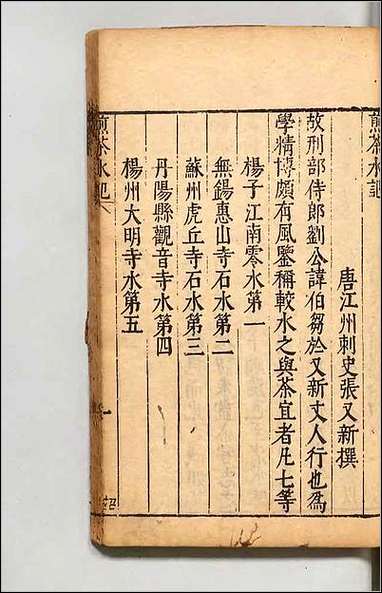 煎茶水記
唐江州刺史張又新撰
故刑部侍郎劉公諱伯芻於又新丈人行也爲
學精博頗有風鑒稱較水之與茶宜者凡七等
楊子江南零水第一
無錫惠山寺石水第二
蘇州虎丘寺石水第三
丹陽縣觀音寺水第四
楊州大明寺水第五
煎茶水記
一